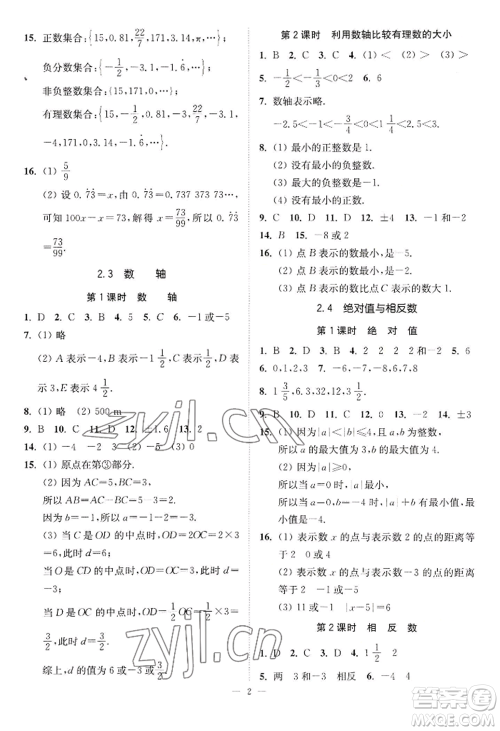 15. 正数集合:{15,0.81,22/7,171,3.14,π,…}
负分数集合:{-1/2,-3.1,…}
非负整数集合:{15,171,0,…}
有理数集合:{15,-1/2,0.81,22/7,-3.1,
-4,171,0,3.14,…}
16. (1) 5/9
(2) 设 0.73=x,则 73.737 373…=
可知 100x-x=73,解得 x=73/99.
=73/99.
2.3 数 轴
第1课时 数 轴
1. D 2. C 3. B 4. C 5. C 6. -1或-5
7. (1) 略
(2) A 表示-4,B 表示-1 1/2,C 表示 1/2,D
表示 3,E 表示 4 1/2.
8. (1) 略 (2) 500 m
9. B 10. C 11. D 12. ±1.6 13. 2
14. (1) -4 -2 3 (2) (3) 0
15. (1) 原点在第③部分.
(2) 因为 AC=5,BC=3,
所以 AB=AC-BC=5-3=2.
因为 b=-1,所以 a=-1-2=-3.
(3) 当 C 是 OD 的中点时,OD=2OC=2×3
=6,此时 d=6;
当 O 是 CD 的中点时,OD=OC=3,此时 d=
-3;
当 D 是 OC 的中点时,OD=1/2OC=1/2×3=
3/2,此时 d=3/2.
综上,d 的值为 6或-3或3/2.
第2课时 利用数轴比较有理数的大小
1. B 2. C 3. C 4. (1) < (2) > (3) < (4) >
5. -1/2<-1/4<0<2 6. ±3
7. 数轴表示略.
-2.5<-1/2<0<1/2<1<2.
8. (1) 最小的正整数是 1.
(2) 没有最小的负整数.
(3) 最大的负整数是-1.
(4) 没有最小的整数.
9. C 10. D 11. D 12. ±4 13. -2
14. B 15. -8或2
16. (1) 点 B 表示的数最小,是-5.
(2) 点 B 表示的数最小,是-4.
(3) 点 B 表示的数比点 C 表示的数大7.
2.4 绝对值与相反数
第1课时 绝 对 值
1. B 2. D 3. C 4. B 5. 2 6. 6
7. 6,6,-7,7,-8,8
8. 1 3/5,6,3,0,1/2,32.
9. B 10. D 11. A 12. D 13. A 14. ±3
15. (1) 因为|a|<|b|≤5,
所以 a=4,b=±5.
(2) 因为|a|≥0,
所以当 a=0 时,|a|+2 有最小值,最小
值是 2.
16. (1) 表示数 x 的点与表示数 1 的点的距离
等于 2 0或-2
(2) 表示数 x 的点与表示数 4 的点的距离
等于 2 2或6
(3) 11或-1
第2课时 相 反 数
1. D 2. D 3. D 4. B
5. 两 3和-3 相反 6. -3
zyjl.cn
zyjl.cn
— 2 —
作业精灵
MXQE.COM